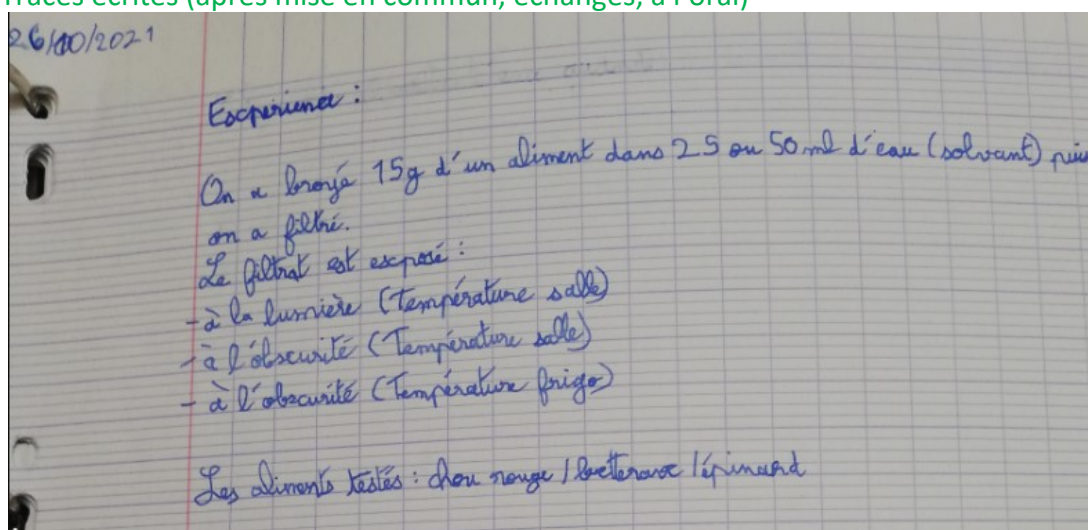 Traces écrites (après mise en commun, échanges, à l'oral)
26/10/2021
Expérience :
On a broyé 15g d'un aliment dans 25 ou 50 ml d'eau (solvant) puis
on a filtré.
Le filtrat est exposé :
- à la lumière (Température salle)
- à l'obscurité (Température salle)
- à l'obscurité (Température frigo)
Les aliments testés : chou rouge / betterave / épinard